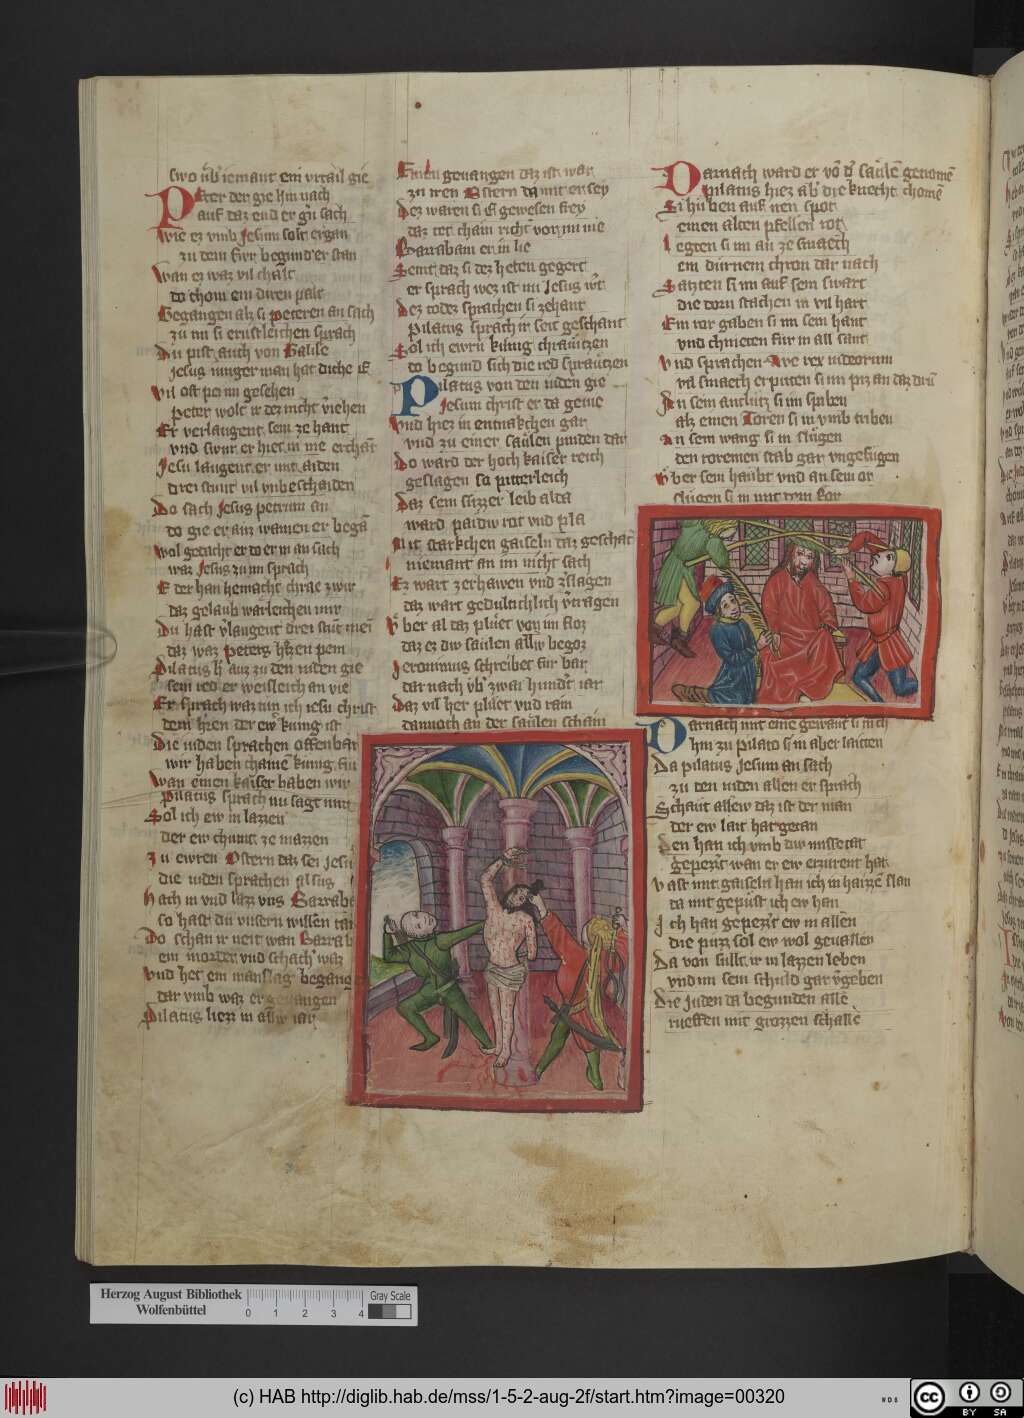 swo vber iemant ein vrtail gie
Peter der gie hin nach
auf daz end er gern sach
wie ez vmb Jesum solt ergan
zu dem fiwr begund er stan
wan ez waz vil chalt
do chom ein diren palt
Gegangen als si peteren an sach
zu im si ernstleichen sprach
Du pist auch von Galile
Jesus iunger man hat diche
vil oft pei im gesehen
Peter wolt ir dez nicht veriehen
Er verlaugent sein ze hant
vnd swur er hiet in nie erchant
Jesu laugent er mit aiden
drei stunt vil vnbeschaiden
Do sach Jesus petrum an
do gie er ainz wainen er began
wol gedacht er do er in an sach
waz Jesus zu im sprach
E der han hernacht chrae zwir
daz gelaub warleichen mir
Du hast verlaugent drei stunt mein
daz waz peters herzen pein
Pilatus her auz zu den iuden gie
sein red er weisleich an vie
Er sprach waz tun ich iesu christ
dem herren der ewr kunig ist
Die iuden sprachen offenbar
wir haben chainen kunig
wan einen kaiser haben wir
Pilatus sprach nu sagt mir
Sol ich ew in lazzen
der ew chumt ze mazzen
Zu ewren Ostern daz sei Jesus
die iuden sprachen alsus
Nach in vnd lazz vns Barraban
so hast du vnsern willen tan
Do schan ir neit wan Barrab
ein morder vnd schacher waz
vnd het ein manslag begangen
dar vmb waz er gevangen
Pilatus liezz in allew iar
Einen gevangen daz ist war
zu iren Ostern damit er sey
Dez waren si E gewesen frey
daz tet chain richter vor im nie
Barrabam er in lie
Seint daz si dez heten gegert
er sprach wez ist nu Jesus wert
Dez todez sprachen si zehant
Pilatus sprach ir seit geschant
Sol ich ewrn kunig chrawtzen
do begund sich die red sprawtzen
Pilatus von den iuden gie
Jesum christ er da geine
vnd hiez in entnakchen gar
vnd zu einer saulen pinden dar
Do ward der hoch kaiser reich
geslagen so pitterleich
Daz sein suzzer leib alda
ward paidw rot vnd pla
Mit starkchen gaiseln daz geschach
niemant an im nicht sach
Ez wart zerhawen vnd zslagen
daz wart gedultichlich vertragen
Vber al daz pluet von im floz
daz ez diw saulen allw begoz
Jeronimus schreibet fur bar
dar nach vber zwai hundert iar
Daz vil her pluet vnd rain
dannoch an der saulen schain
Darnach ward er von der saulen genomen
Pilatus hiez aber die knecht chomen
Si huben auf iren spot
einen alten pfellen rot
Legten si im an ze smaech
ein durnein chron dar nach
Satzten si im auf sein swart
die dorn stachen in vil hart
Ein ror gaben si im sein hant
vnd chnieten fur in all sant
Vnd sprachen Ave rex iudeorum
vil smaech erputen si im piz an daz drum
An sein antlutz si im spiben
alz einen Toren si in vmb triben
An sein wang si in slugen
den roreinen stab gar vngefugen
Vber sein haubt vnd an sein or
slugen si in mit dem ror
Darnach mit eine gewant si nich
hin zu pilato si in aber laitten
Da pilatus Jesum an sach
zu den iuden allen er sprach
Schaut allew daz ist der man
der ew lait hat getan
Den han ich vmb diw missetat
gepezzert wan er ew erzurent hat
Vast mit gaiseln han ich in haizzen slan
da mit gepust ich ew han
Ich han gepezzert ew in allen
die puzz sol ew wol gevallen
Da von sullt ir in lazzen leben
vnd im sein schuld gar vergeben
Die Juden da begunden alle
rueffen mit grozzen schalle
Herzog August Bibliothek
Wolfenbüttel
0 1 2 3 4
Gray Scale
(c) HAB http://diglib.hab.de/mss/1-5-2-aug-2f/start.htm?image=00320
WDB
cc BY SA